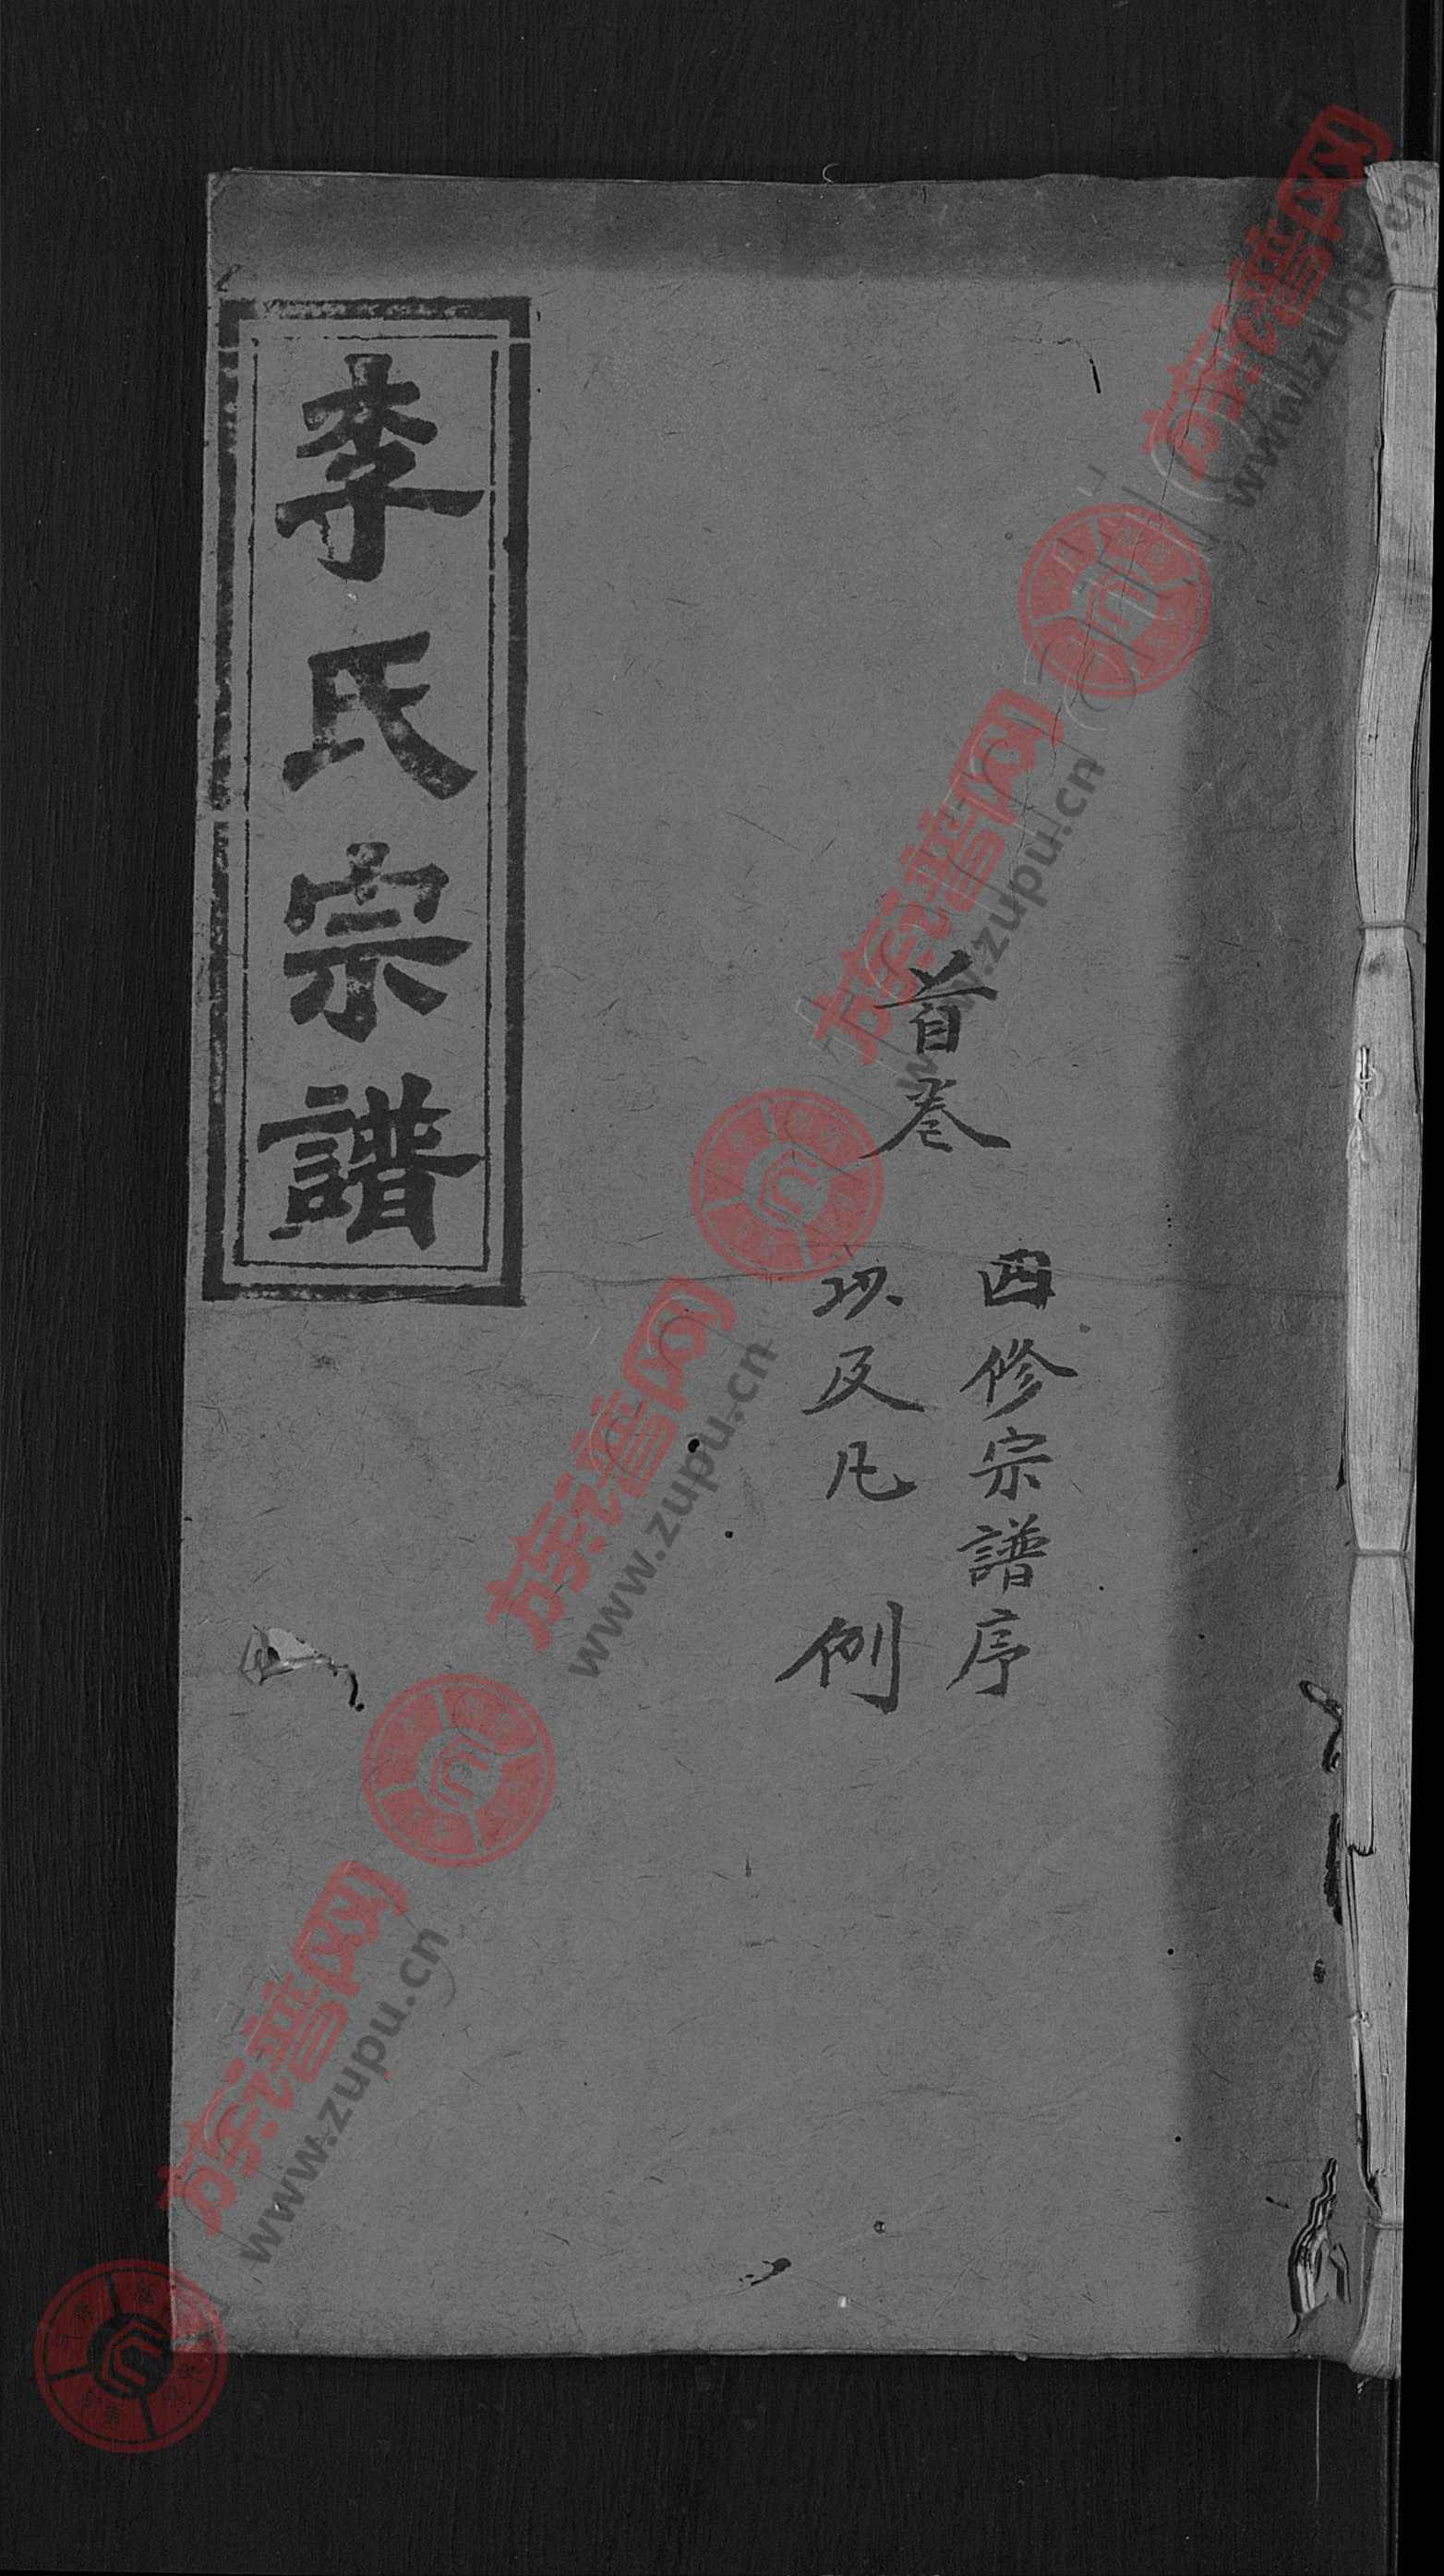 首卷
四修宗譜序
以及凡例
李氏宗譜
族谱网
www.zupu.cn
族谱网
www.zupu.cn
族谱网
www.zupu.cn
族谱网
www.zupu.cn